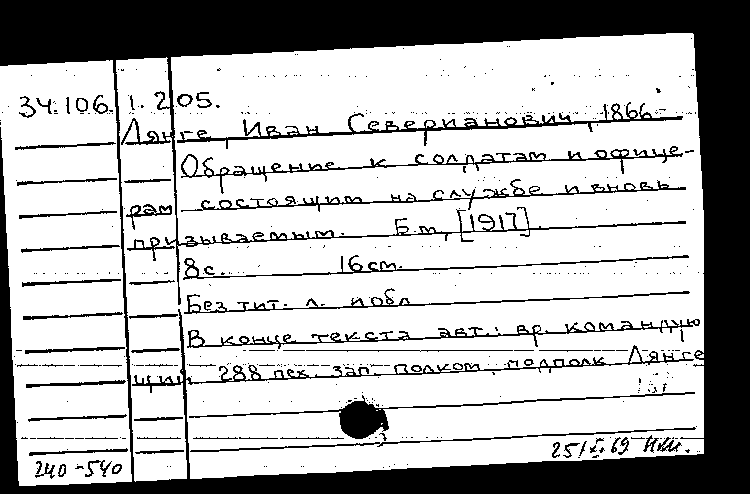 34.106.1.205.
Лянге, Иван Северианович, 1866-
Обращение к солдатам и офице-
рам состоящим на службе и вновь
призываемым. Б.м, [1917].
8с. 16см.
Без тит. л. и обл
В конце текста авт.: вр. командую
щий 288 пех. зап. полком, подполк Лянге
240-540 25/I 69